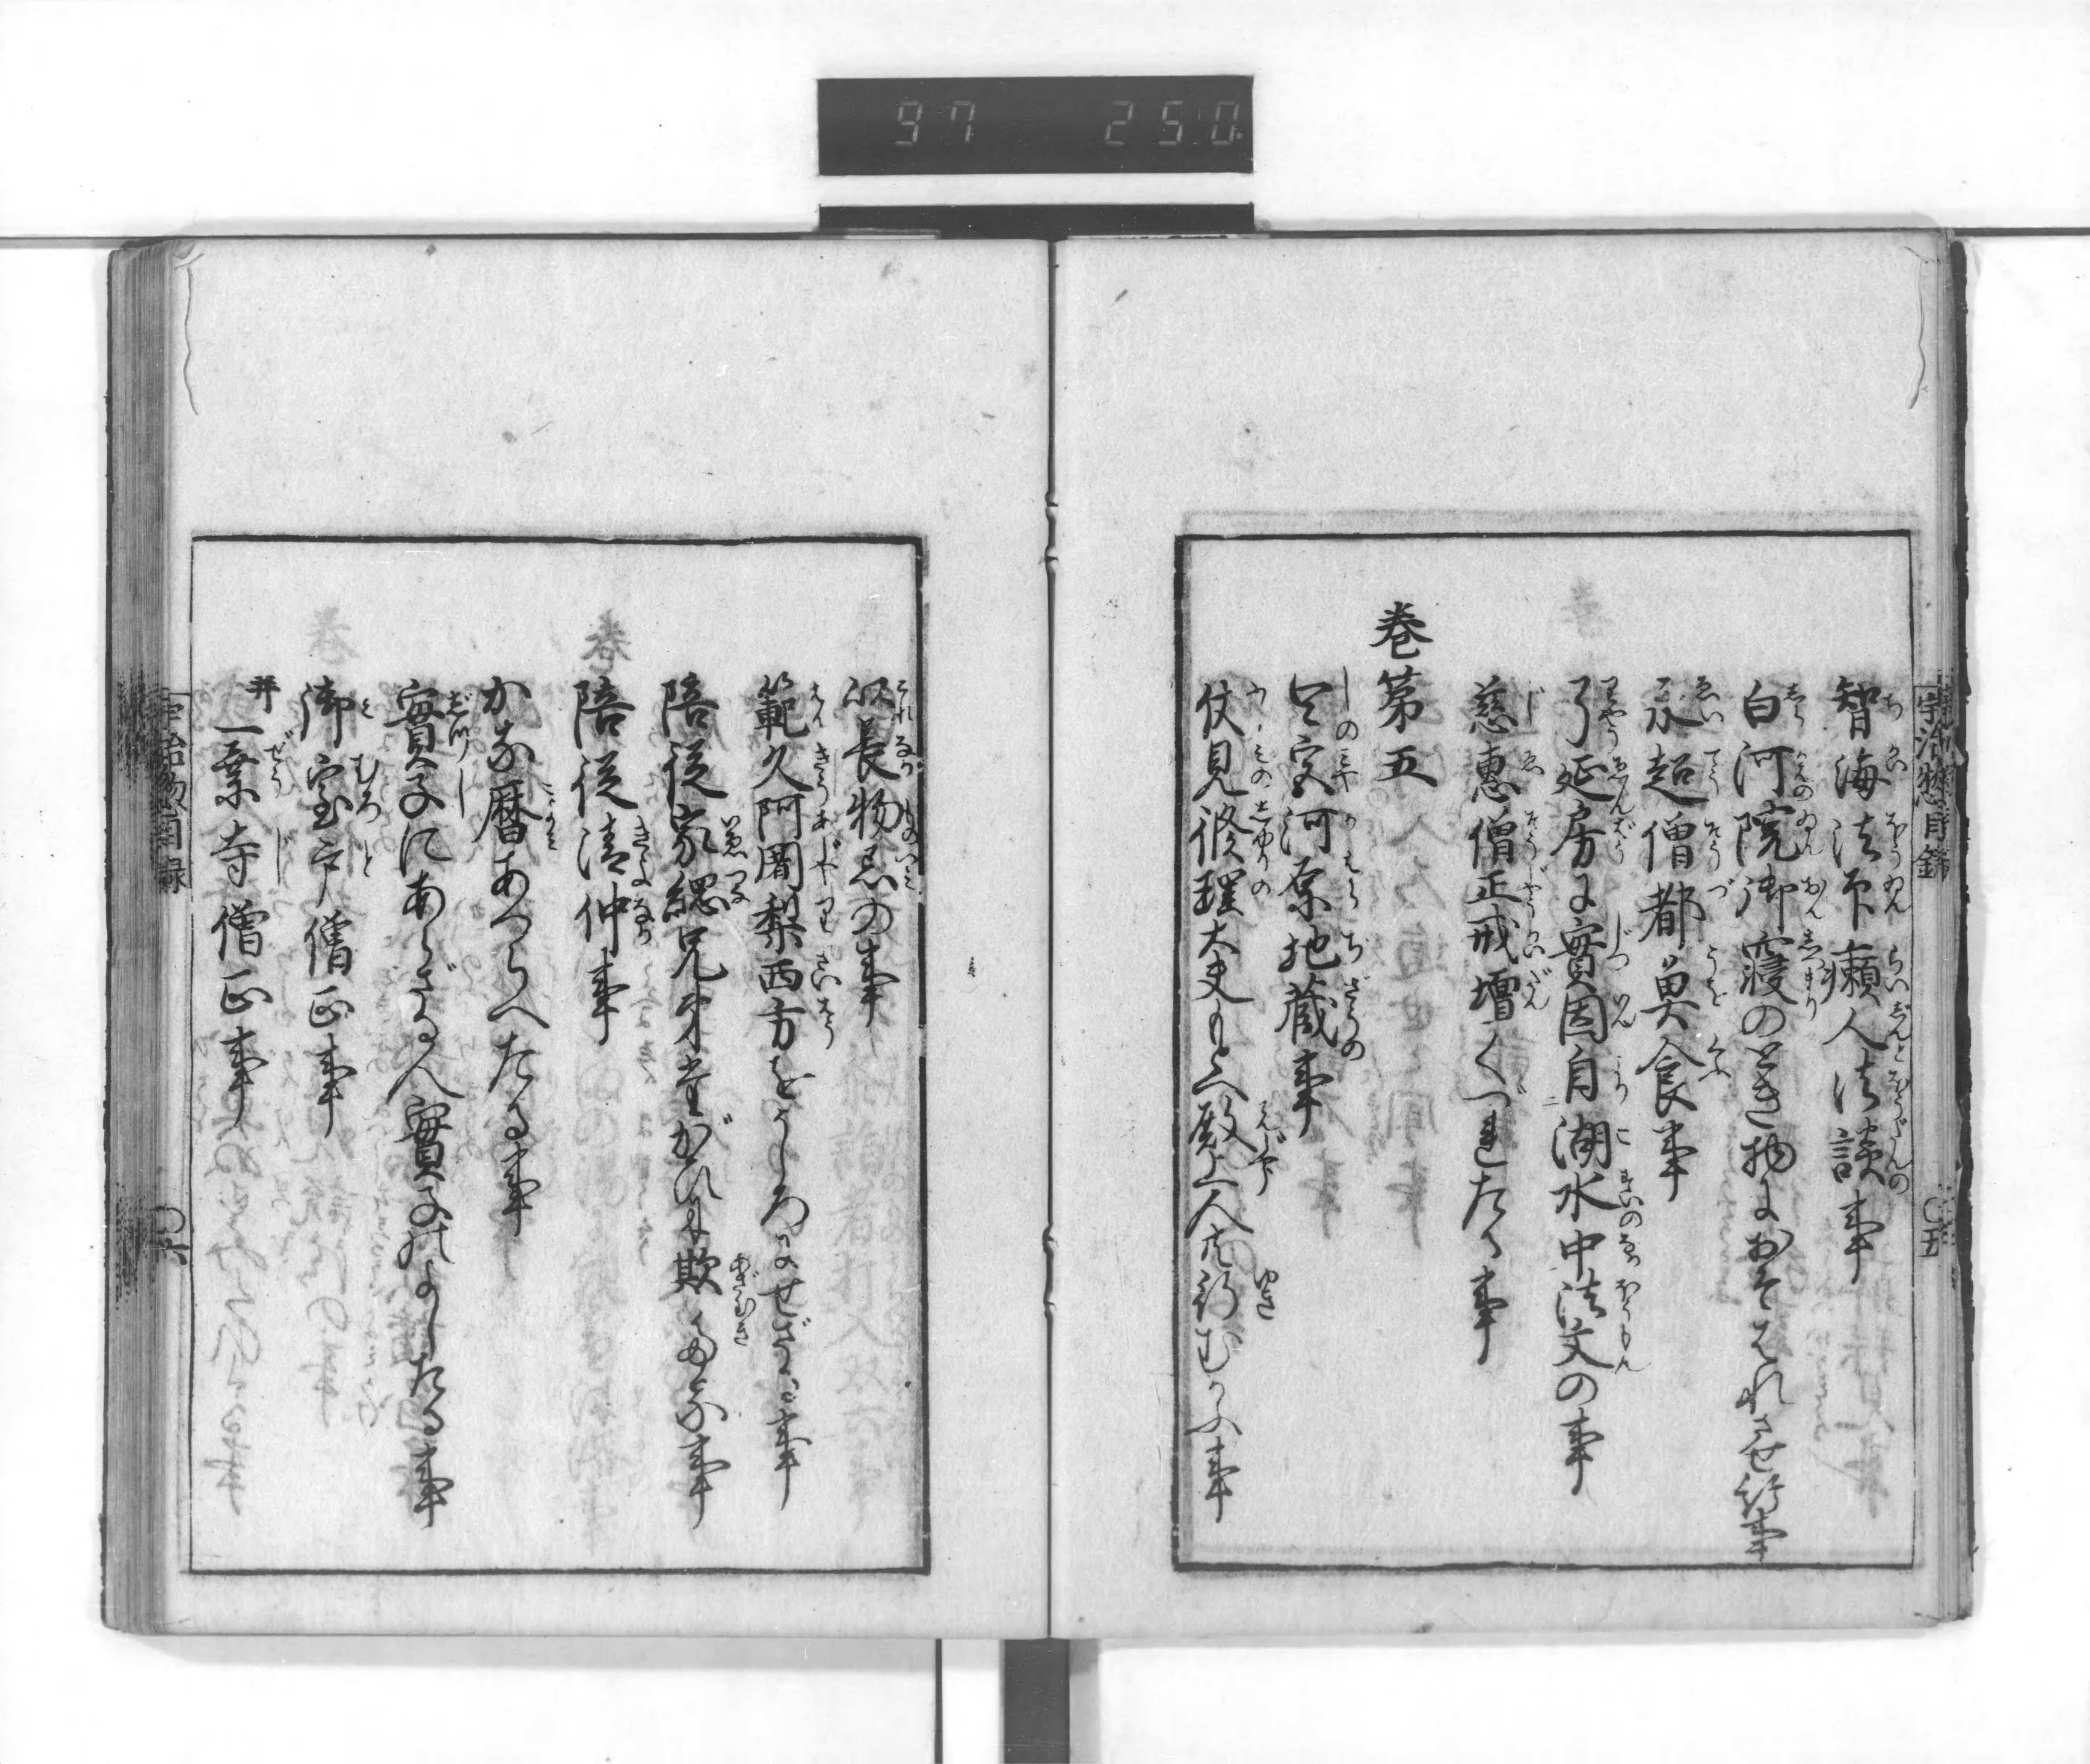 97 250
智海法印癩人法談事
白河院御寝のとき物におそはれさせ給事
永超僧都魚食事
了延房に實因自湖水中法文の事
慈恵僧正戒壇くづれたる事
巻第五
四宮河原地蔵事
伏見修理大夫もとへ殿上人共行むかふ事
以長物忌の事
範久阿闍梨西方をうしろにせざる事
陪従家綱兄弟たがひに欺たる事
陪従清仲事
かな暦あつらへたる事
實子にあらざる人實子のよししたる事
御室戸僧正事
并一乗寺僧正事